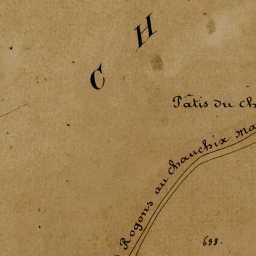 C H
Pâtis du ch
Rogons au chauchix ma
698.